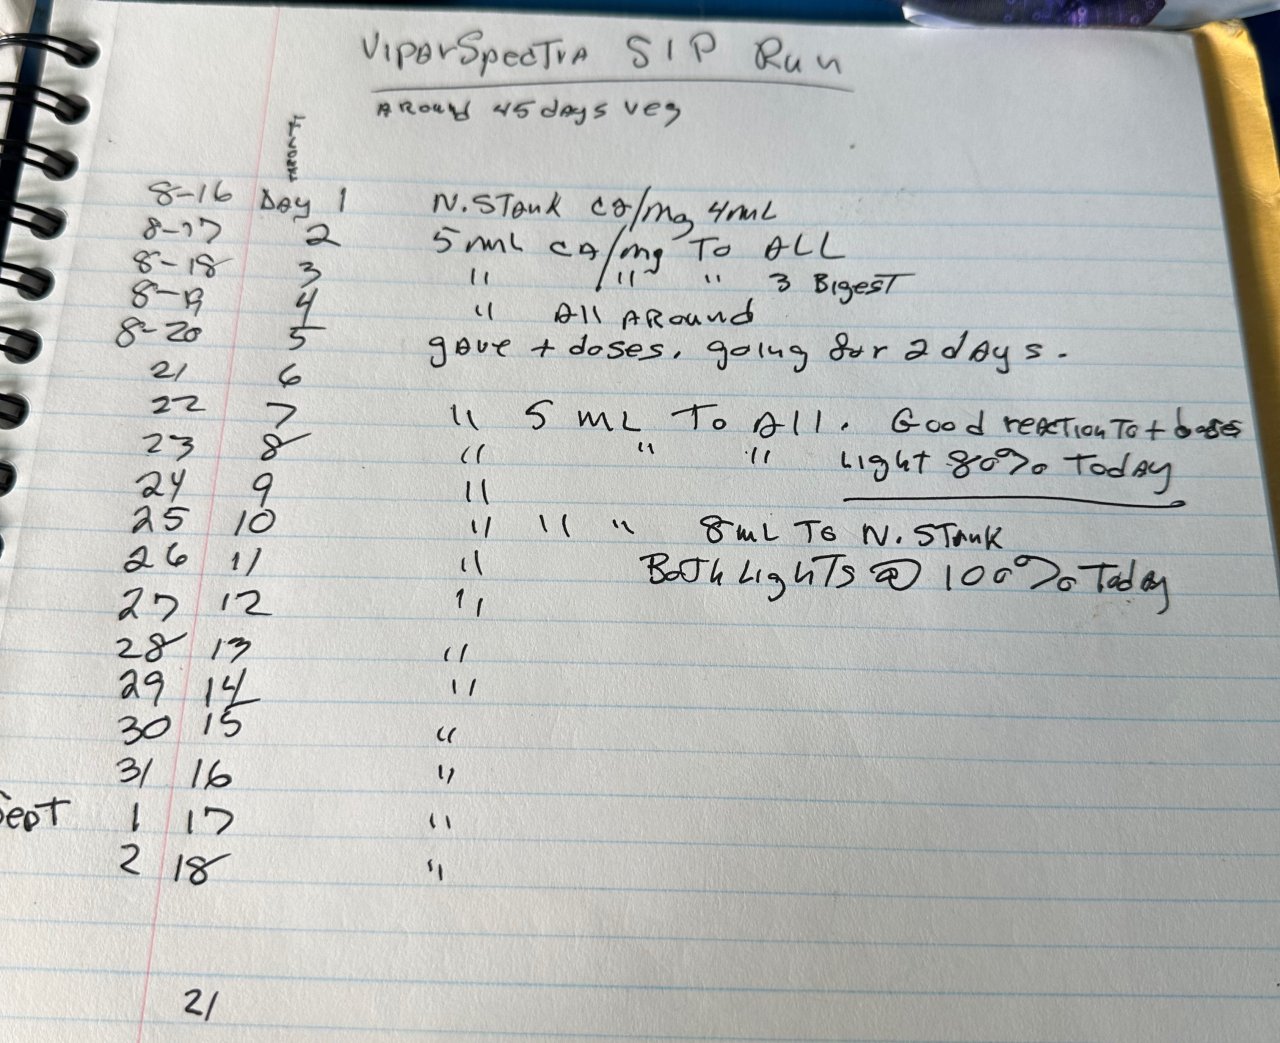 ViparSpecTrA SIP Run
Around 45 days veg
Flower
8-16 Day 1 N.STank ca/mg 4mL
8-17 2 5 mL ca/mg To ALL
8-18 3 " " " 3 BigesT
8-19 4 " All Around
8-20 5 gave + doses, going for 2 days.
21 6
22 7 " 5 mL To All. Good reacTion To +
23 8 " " " Light 80% Today
24 9 "
25 10 " " " 8mL To N.STank
26 11 " Both LighTs @ 100% Today
27 12 "
28 13 "
29 14 "
30 15 "
31 16 "
Sept 1 17 "
2 18 "
21